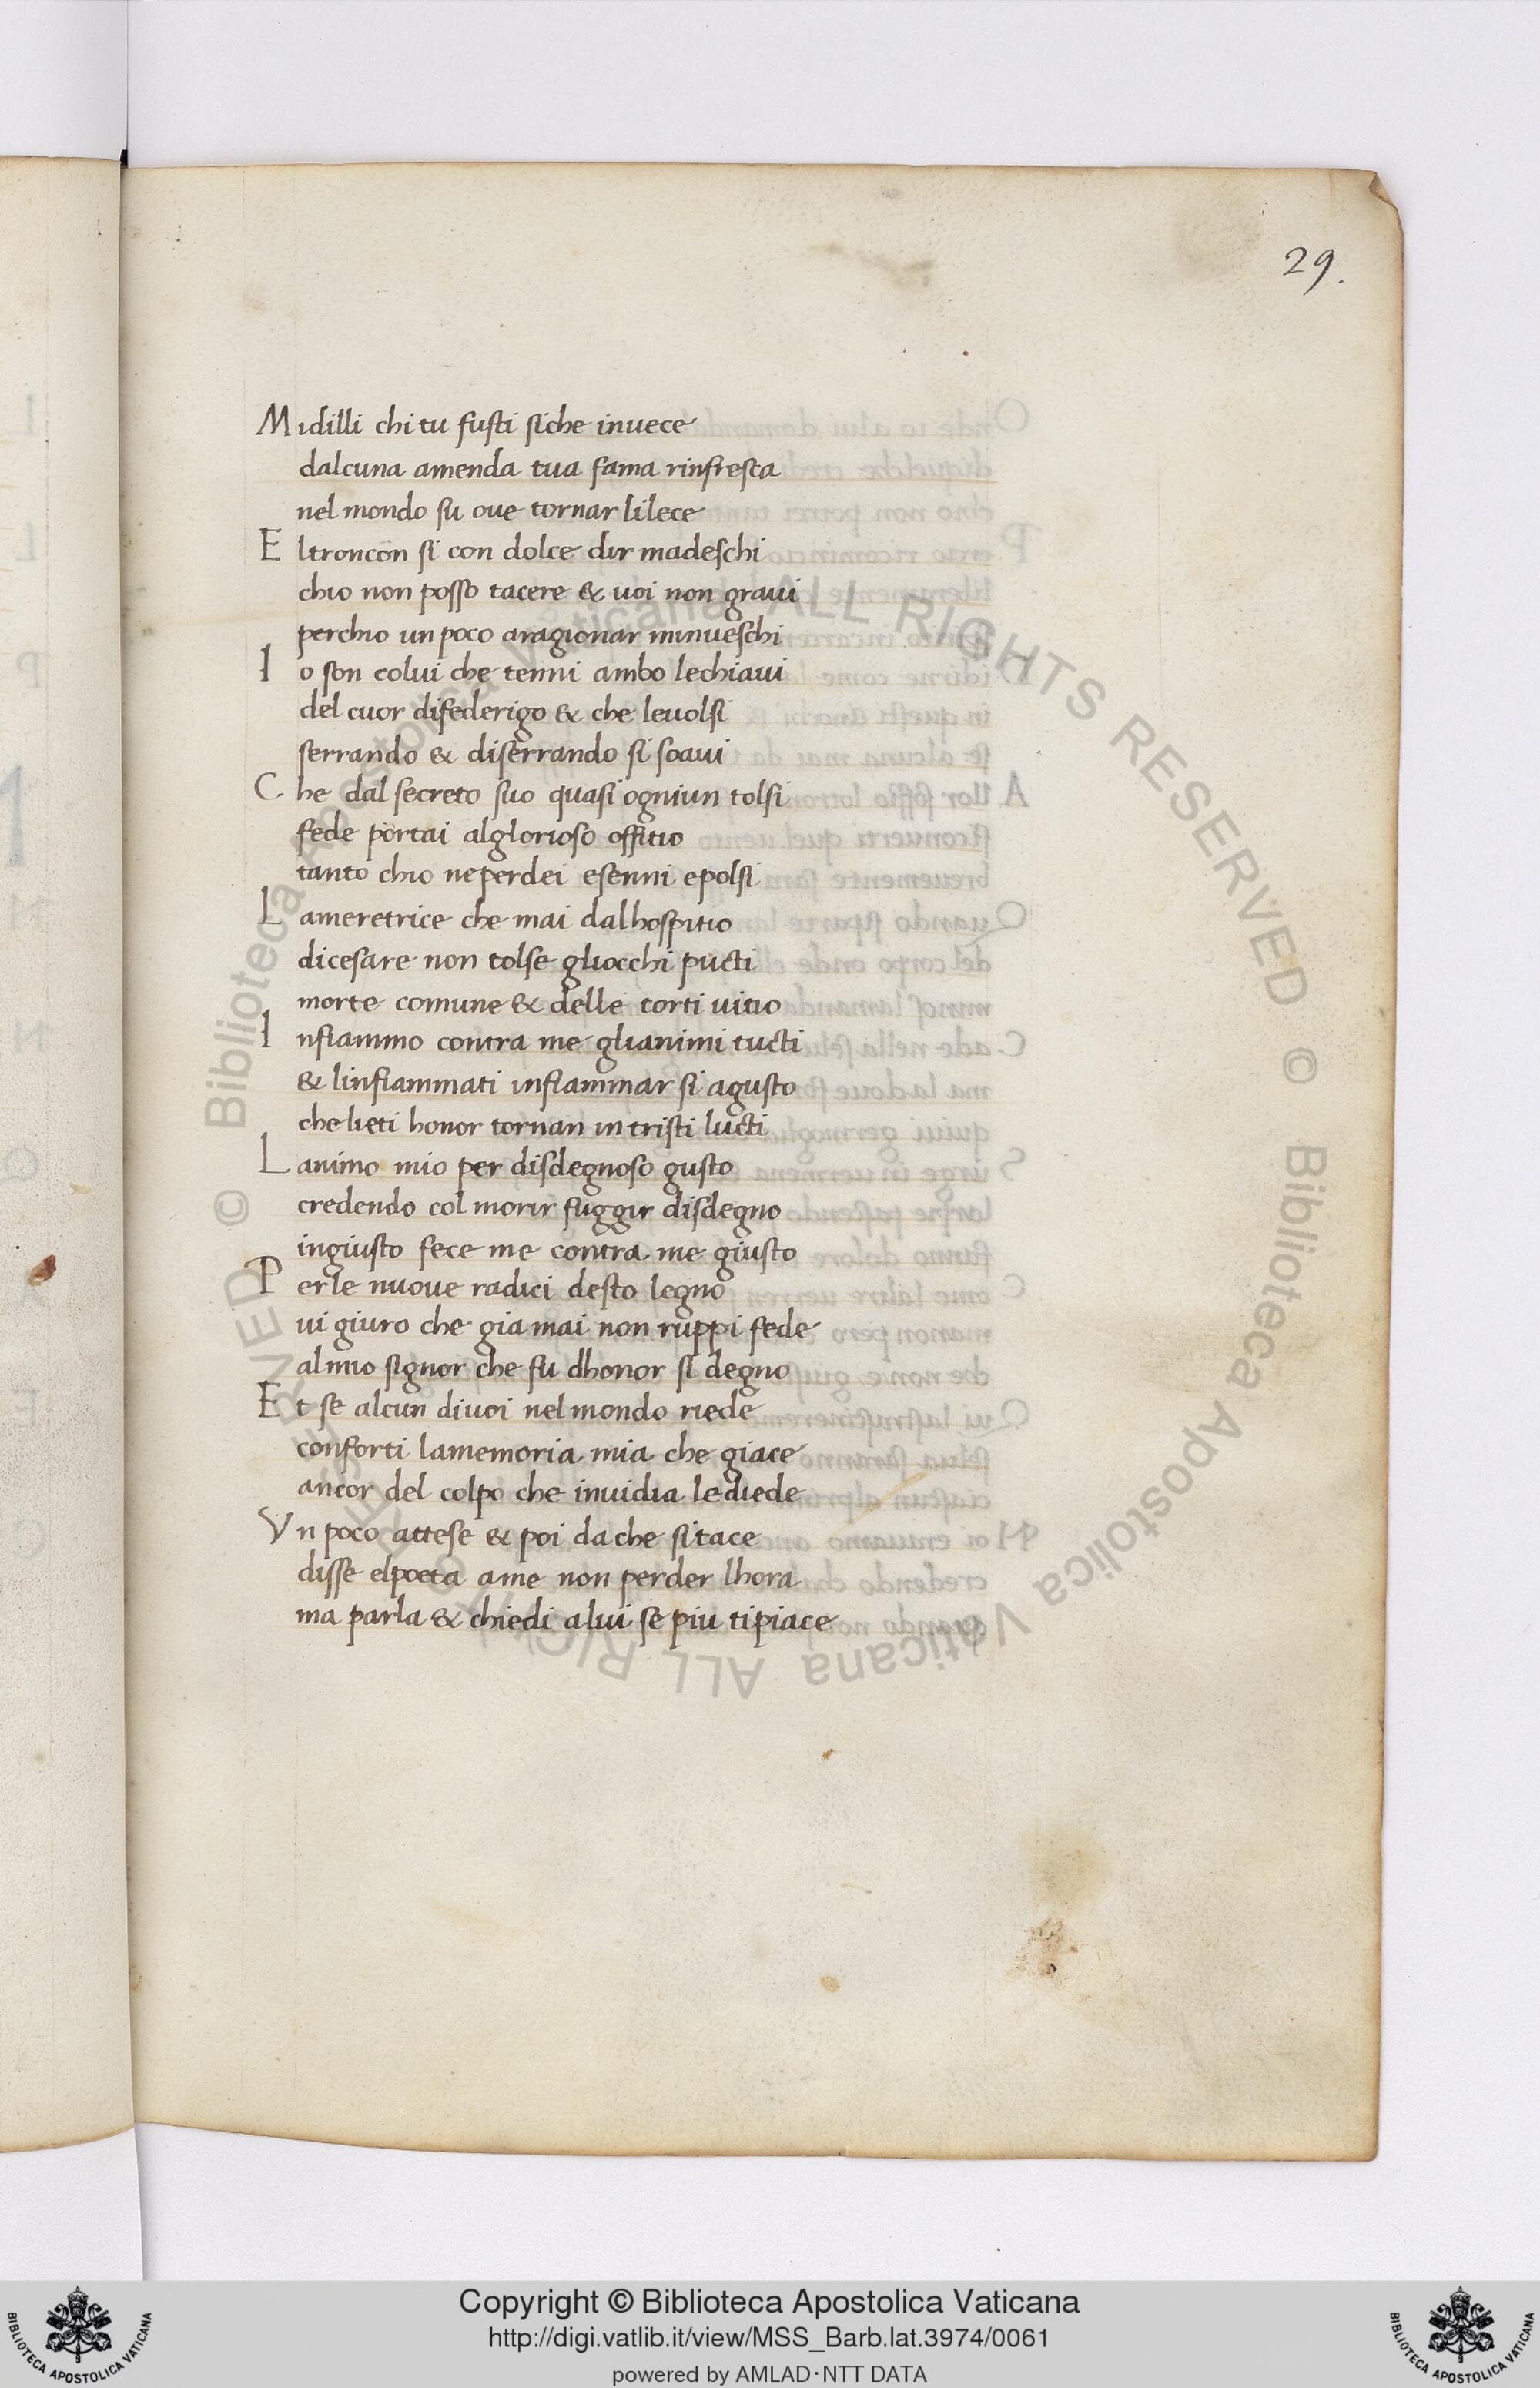 29.
Midilli chi tu fusti siche inuece
dalcuna amenda tua fama rinfresca
nel mondo su oue tornar lilece
E ltroncon si con dolce dir madeschi
chio non posso tacere & uoi non graui
perchio un poco aragionar minueschi
I o son colui che tenni ambo lechiaui
del cuor difederigo & che leuolsi
serrando & diserrando si soaui
C he dal secreto suo quasi ogniun tolsi
fede portai alglorioso offitio
tanto chio neperdei esenni epolsi
L ameretrice che mai dalhospitio
dicesare non tolse gliocchi pucti
morte comune & delle corti uitio
I nfiammo contra me glianimi tucti
& linfiammati infiammar si agusto
chelieti honor tornan in tristi lucti
L animo mio per disdegnoso gusto
credendo col morir fuggir disdegno
ingiusto fece me contra me giusto
P erle nuoue radici desto legno
ui giuro che gia mai non ruppi fede
almio signor che fu dhonor si degno
E t se alcun diuoi nel mondo riede
conforti lamemoria mia che giace
ancor del colpo che inuidia lediede
V n poco attese & poi da che sitace
disse elpoeta ame non perder lhora
ma parla & chiedi alui se piu tipiace
© Biblioteca Apostolica Vaticana ALL RIGHTS RESERVED © Biblioteca Apostolica Vaticana ALL RIGHTS RESERVED
Copyright © Biblioteca Apostolica Vaticana
http://digi.vatlib.it/view/MSS_Barb.lat.3974/0061
powered by AMLAD·NTT DATA
BIBLIOTECA APOSTOLICA VATICANA
BIBLIOTECA APOSTOLICA VATICANA